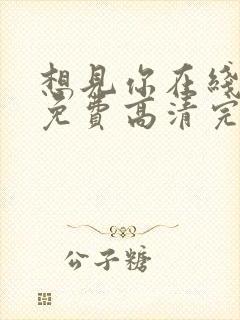 想見你在綫
免費高清完
公子糖